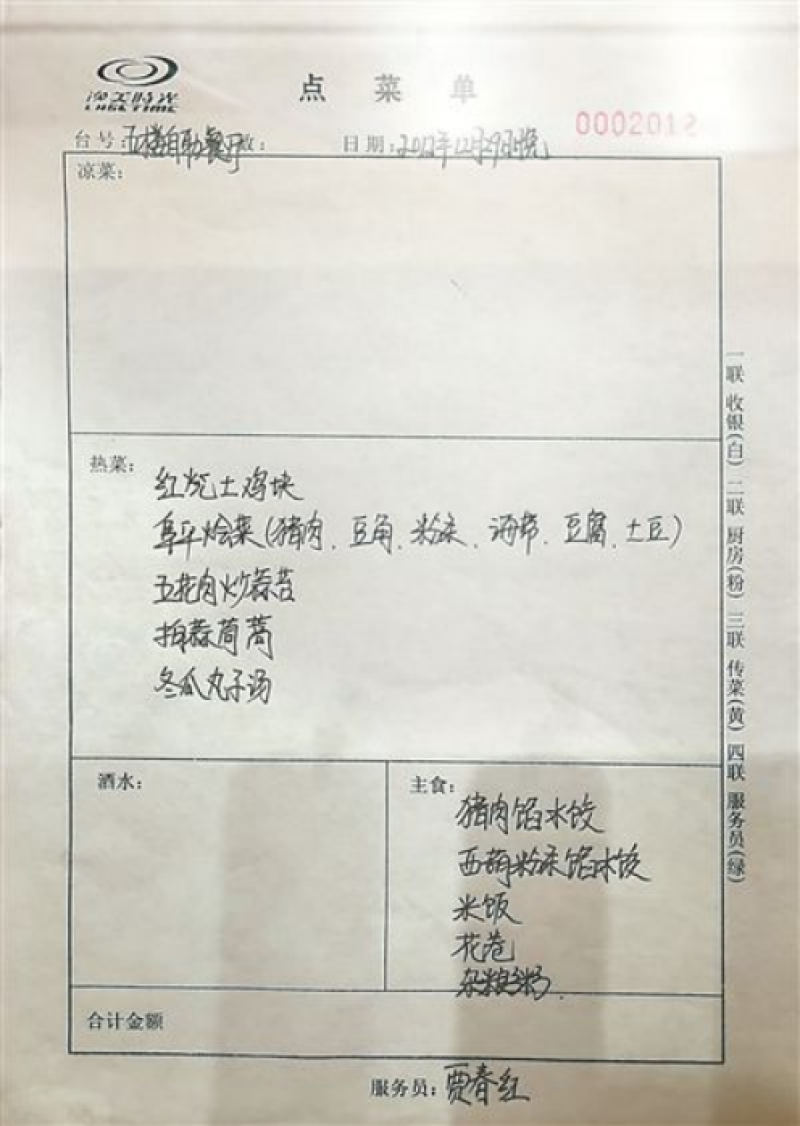 点 菜 单
0002012
台号:五楼自助餐厅 数:
日期:2012年12月29日晚
凉菜:
热菜:
红烧土鸡块
阜平烩菜(猪肉、豆角、粉条、海带、豆腐、土豆)
五花肉炒蒜苔
拍蒜茼蒿
冬瓜丸子汤
酒水:
主食:
猪肉馅水饺
西葫粉条馅水饺
米饭
花卷
杂粮粥
合计金额
服务员:贾春红
一联 收银(白) 二联 厨房(粉) 三联 传菜(黄) 四联 服务员(绿)